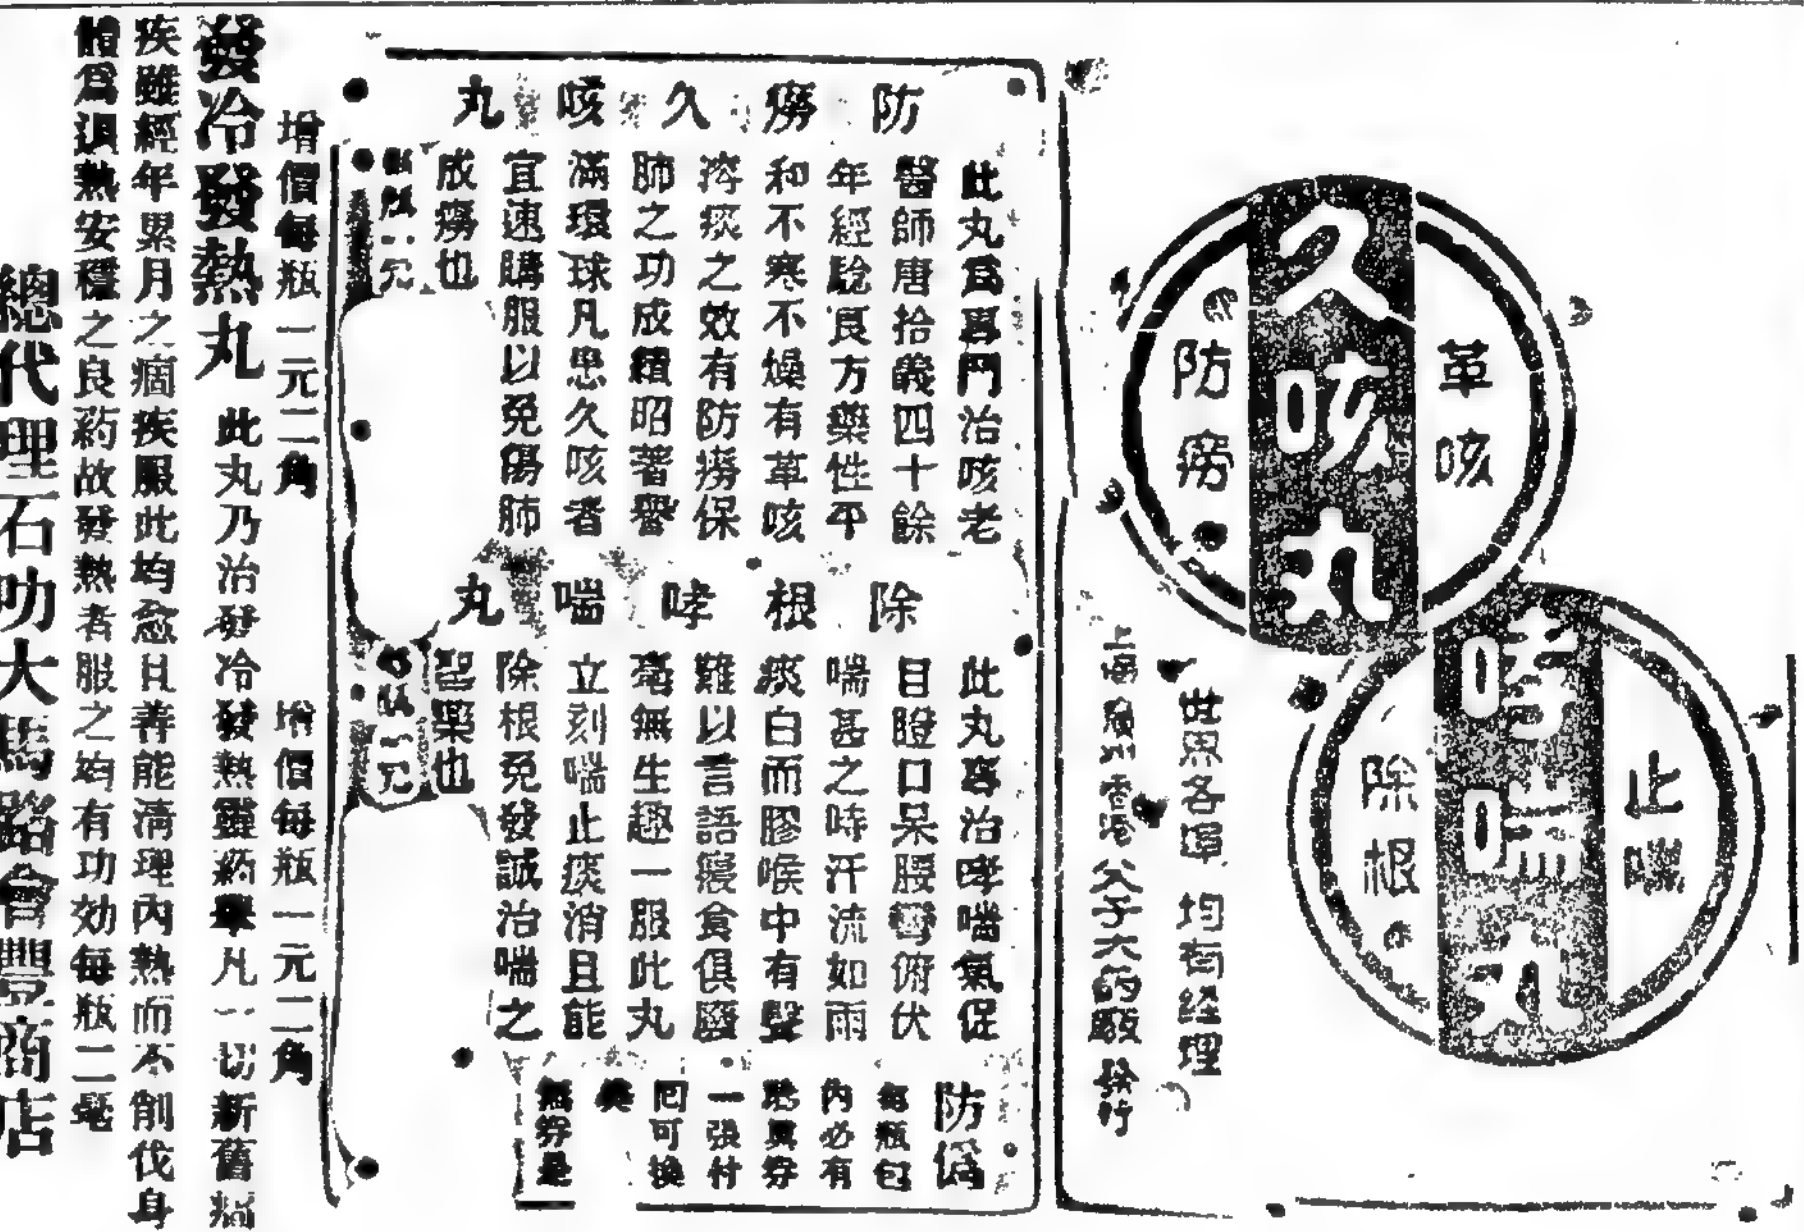 久咳丸
革咳
防癆
哮喘丸
止喘
除根
世界各埠均有経理
上海
八子大药厰發行
防癆久咳丸
此丸爲專門治咳老
醫師唐拾義四十餘
年經驗良方藥性平
和不寒不燥有革咳
疼痰之效有防癆保
肺之功成績昭著譽
滿環球凡患久咳者
宜速購服以免傷肺
成癆也
一元
除根哮喘丸
此丸專治哮喘氣促
目瞪口呆腰彎俯伏
喘甚之時汗流如雨
痰白而膠喉中有聲
難以言語寢食俱廢
毫無生趣一服此丸
立刻喘止痰消且能
除根免發誠治喘之
聖藥也
一元
防僞
每瓶包
內必有
一張付
回可換
獎
無券是
增價每瓶一元二角
增價每瓶一元二角
發冷發熱丸
此丸乃治發冷發熱靈葯舉凡一切新舊
疾雖經年累月之痼疾服此均愈且善能淸理內熱而不削伐身
體爲退熱安穩之良葯故發熱者服之均有功効每瓶二毫
總代理石叻大馬路會豐商店